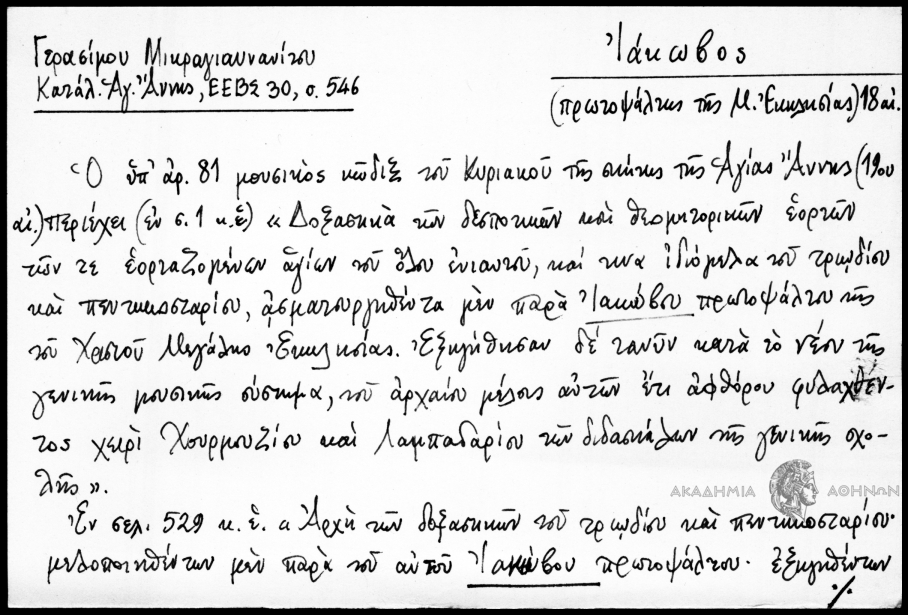 Γερασίμου Μικραγιαννανίτου
Κατάλ. Ἁγ. Ἄννης, ΕΕΒΣ 30, σ. 546
Ἰάκωβος
(πρωτοψάλτης τῆς Μ. Ἐκκλησίας) 18 αἰ.
Ὁ ὑπ' ἀρ. 81 μουσικὸς κῶδιξ τοῦ Κυριακοῦ τῆς σκήτης τῆς Ἁγίας Ἄννης (19ου
αἰ.) περιέχει (ἐν σ. 1 κ.ἑ) « Δοξαστικὰ τῶν δεσποτικῶν καὶ θεομητορικῶν ἑορτῶν
τῶν τε ἑορταζομένων ἁγίων τοῦ ὅλου ἐνιαυτοῦ, καί τινα ἰδιόμελα τοῦ τριῳδίου
καὶ πεντηκοσταρίου, ᾀσματουργηθέντα μὲν παρὰ Ἰακώβου πρωτοψάλτου τῆς
τοῦ Χριστοῦ Μεγάλης Ἐκκλησίας. Ἐξηγήθησαν δὲ τανῦν κατὰ τὸ νέον τῆς
γενικῆς μουσικῆς σύστημα, τοῦ ἀρχαίου μέλους αὐτῶν ἔτι ἀφθόρου φυλαχθέν-
τος χειρὶ Χουρμουζίου καὶ Λαμπαδαρίου τῶν διδασκάλων τῆς γενικῆς σχο-
λῆς ».
ΑΚΑΔΗΜΙΑ ΑΘΗΝΩΝ
Ἐν σελ. 529 κ. ἑ. « Ἀρχὴ τῶν δοξαστικῶν τοῦ τριῳδίου καὶ πεντηκοσταρίου·
μελοποιηθέντων μὲν παρὰ τοῦ αὐτοῦ Ἰακώβου πρωτοψάλτου· ἐξηγηθέντων
./.